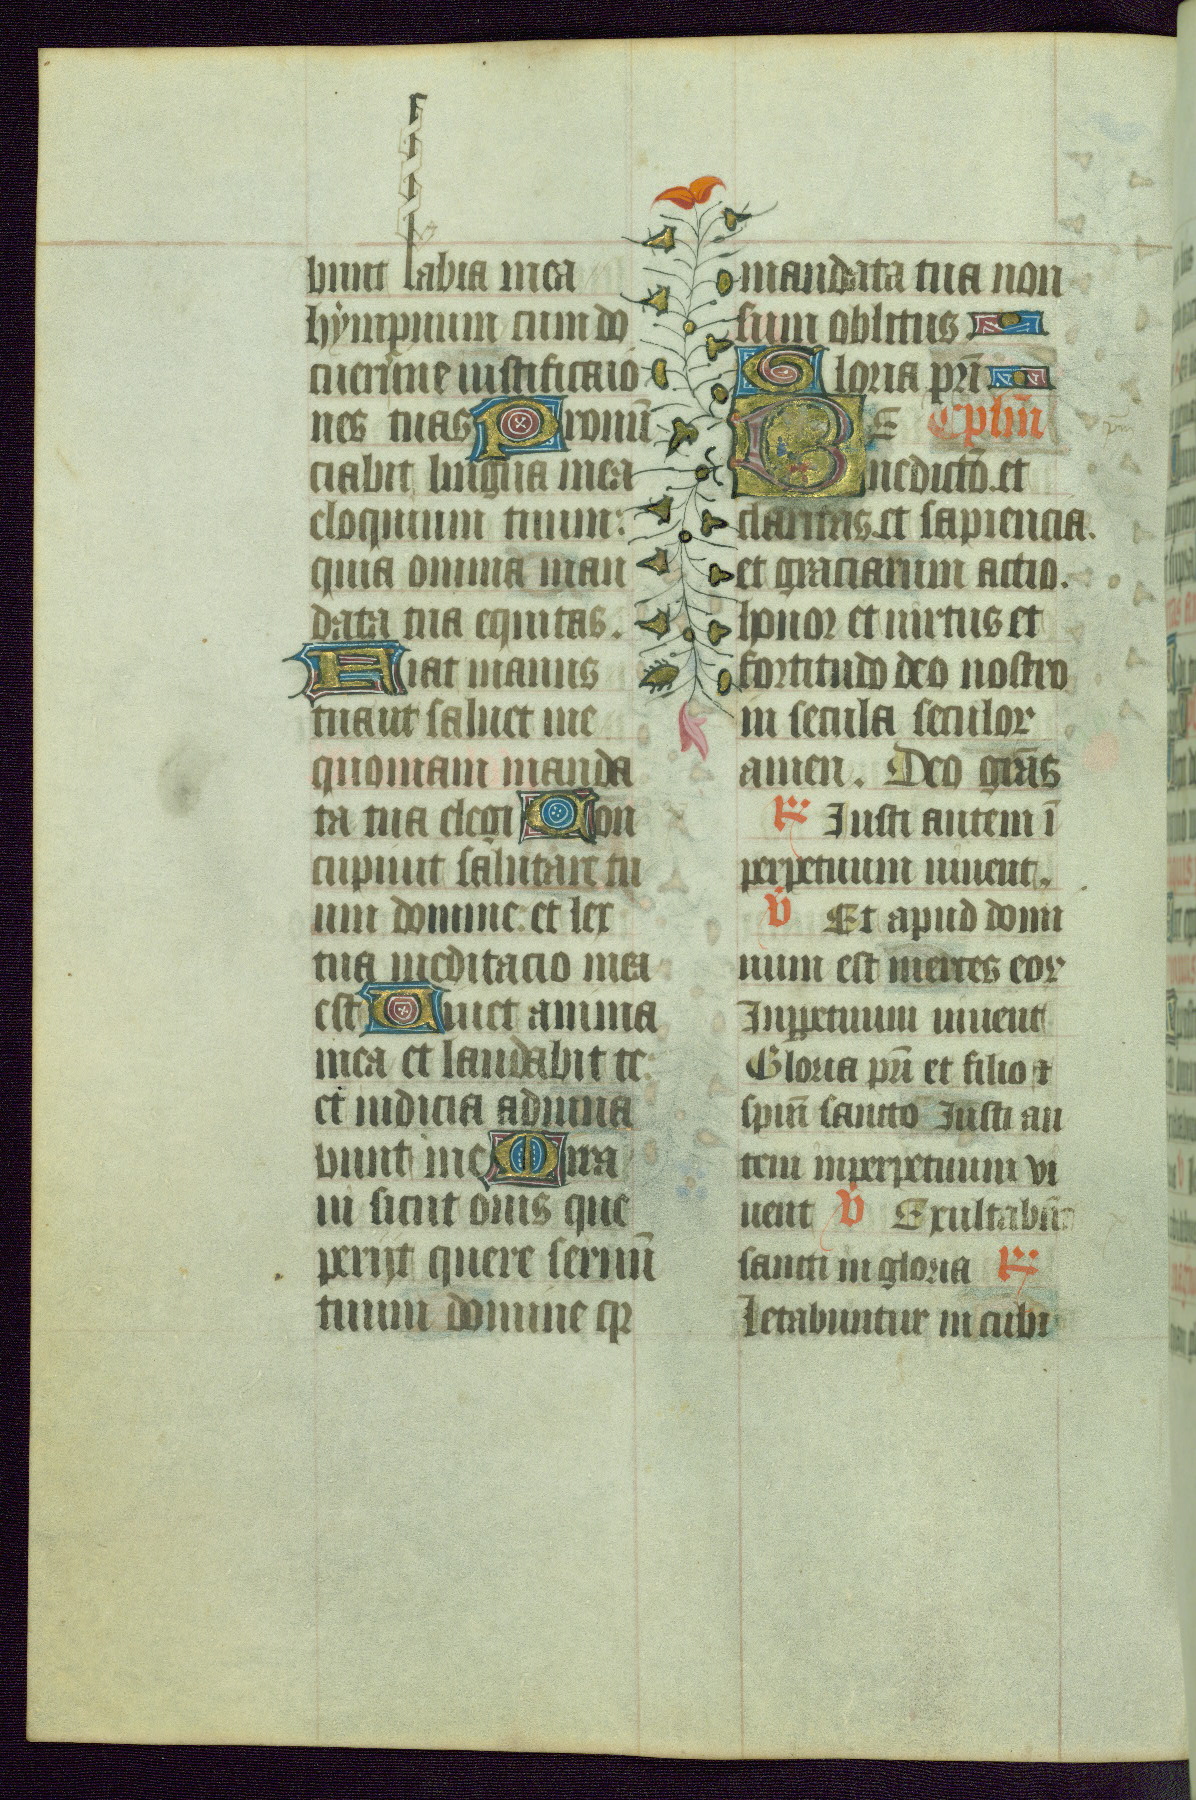 bunt labia mea
hympnum cum do
cuerime iustificacio
nes tuas Pronũ
ciabit lingua mea
eloquium tuum:
quia omnia man
data tua equitas.
Fiat manus
tua ut saluet me
quoniam manda
ta tua elegi Con
cupiuit salutare tu
um domine: et lex
tua meditacio mea
est Uiuet anima
mea et laudabit te:
et iudicia adiuua
bunt me Erra
ui sicut ouis que
perijt quere seruũ
tuum domine q
mandata tua non
sum oblitus
Gloria pri
BE Cplm
nedictõ. et
claritas. et sapiencia.
et graciarum actio.
honor et uirtus et
fortitudo deo nostro
in secula seculor
amen. Deo gras
R Iusti autem ĩ
perpetuum uiuent.
V Et apud domi
num est merces eor
Inppetuum uiuent
Gloria pri et filio et
spiri sancto Iusti au
tem inperpetuum vi
uent V Exultabũt
sancti in gloria R
letabuntur in cubi